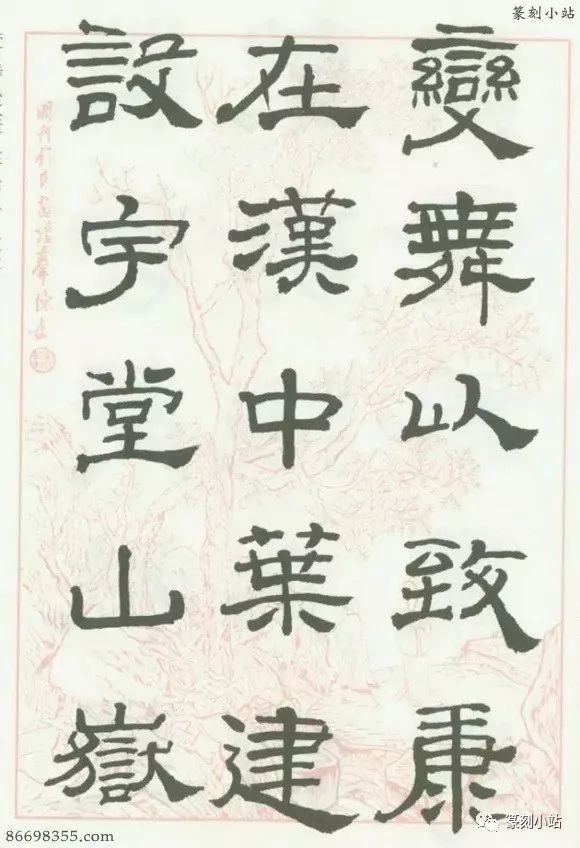 篆刻小站
變舞以致康
在漢中葉建
設宇堂山嶽
86698355.com
篆刻小站